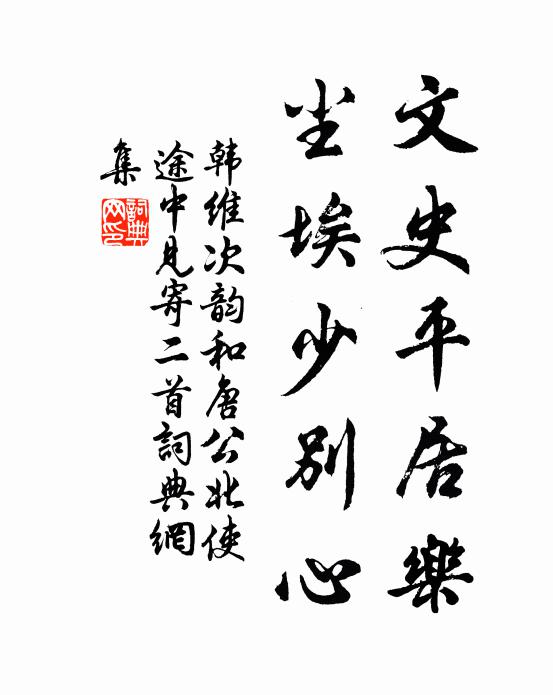 文史平居樂
尘埃少別心
韩维次韵和唐公北使
途中見寄二首詞典網
集
詞典网印